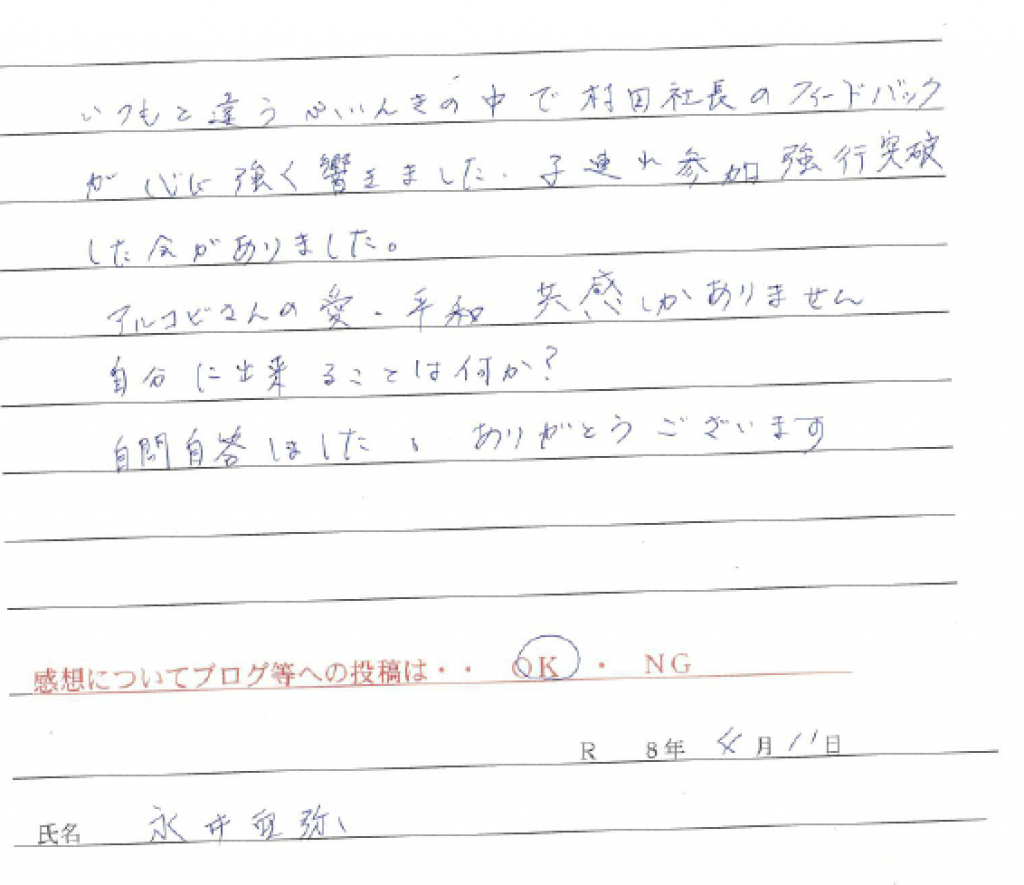 いつもと違うふいんきの中で村田社長のフィードバック
が心に強く響きました。子連れ参加強行突破
した会がありました。
アルコビさんの愛・平和 共感しかありません
自分に出来ることは何か?
自問自答しました。ありがとうございます
感想についてブログ等への投稿は・・ OK ・ NG
R 8年 4月11日
氏名 永井 弥